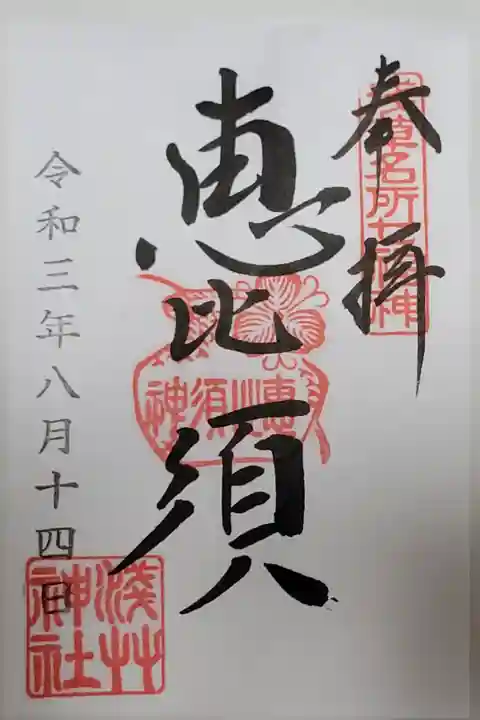 奉拝
浅草名所七福神
恵比須
恵比須神
令和三年八月十四日
浅草神社